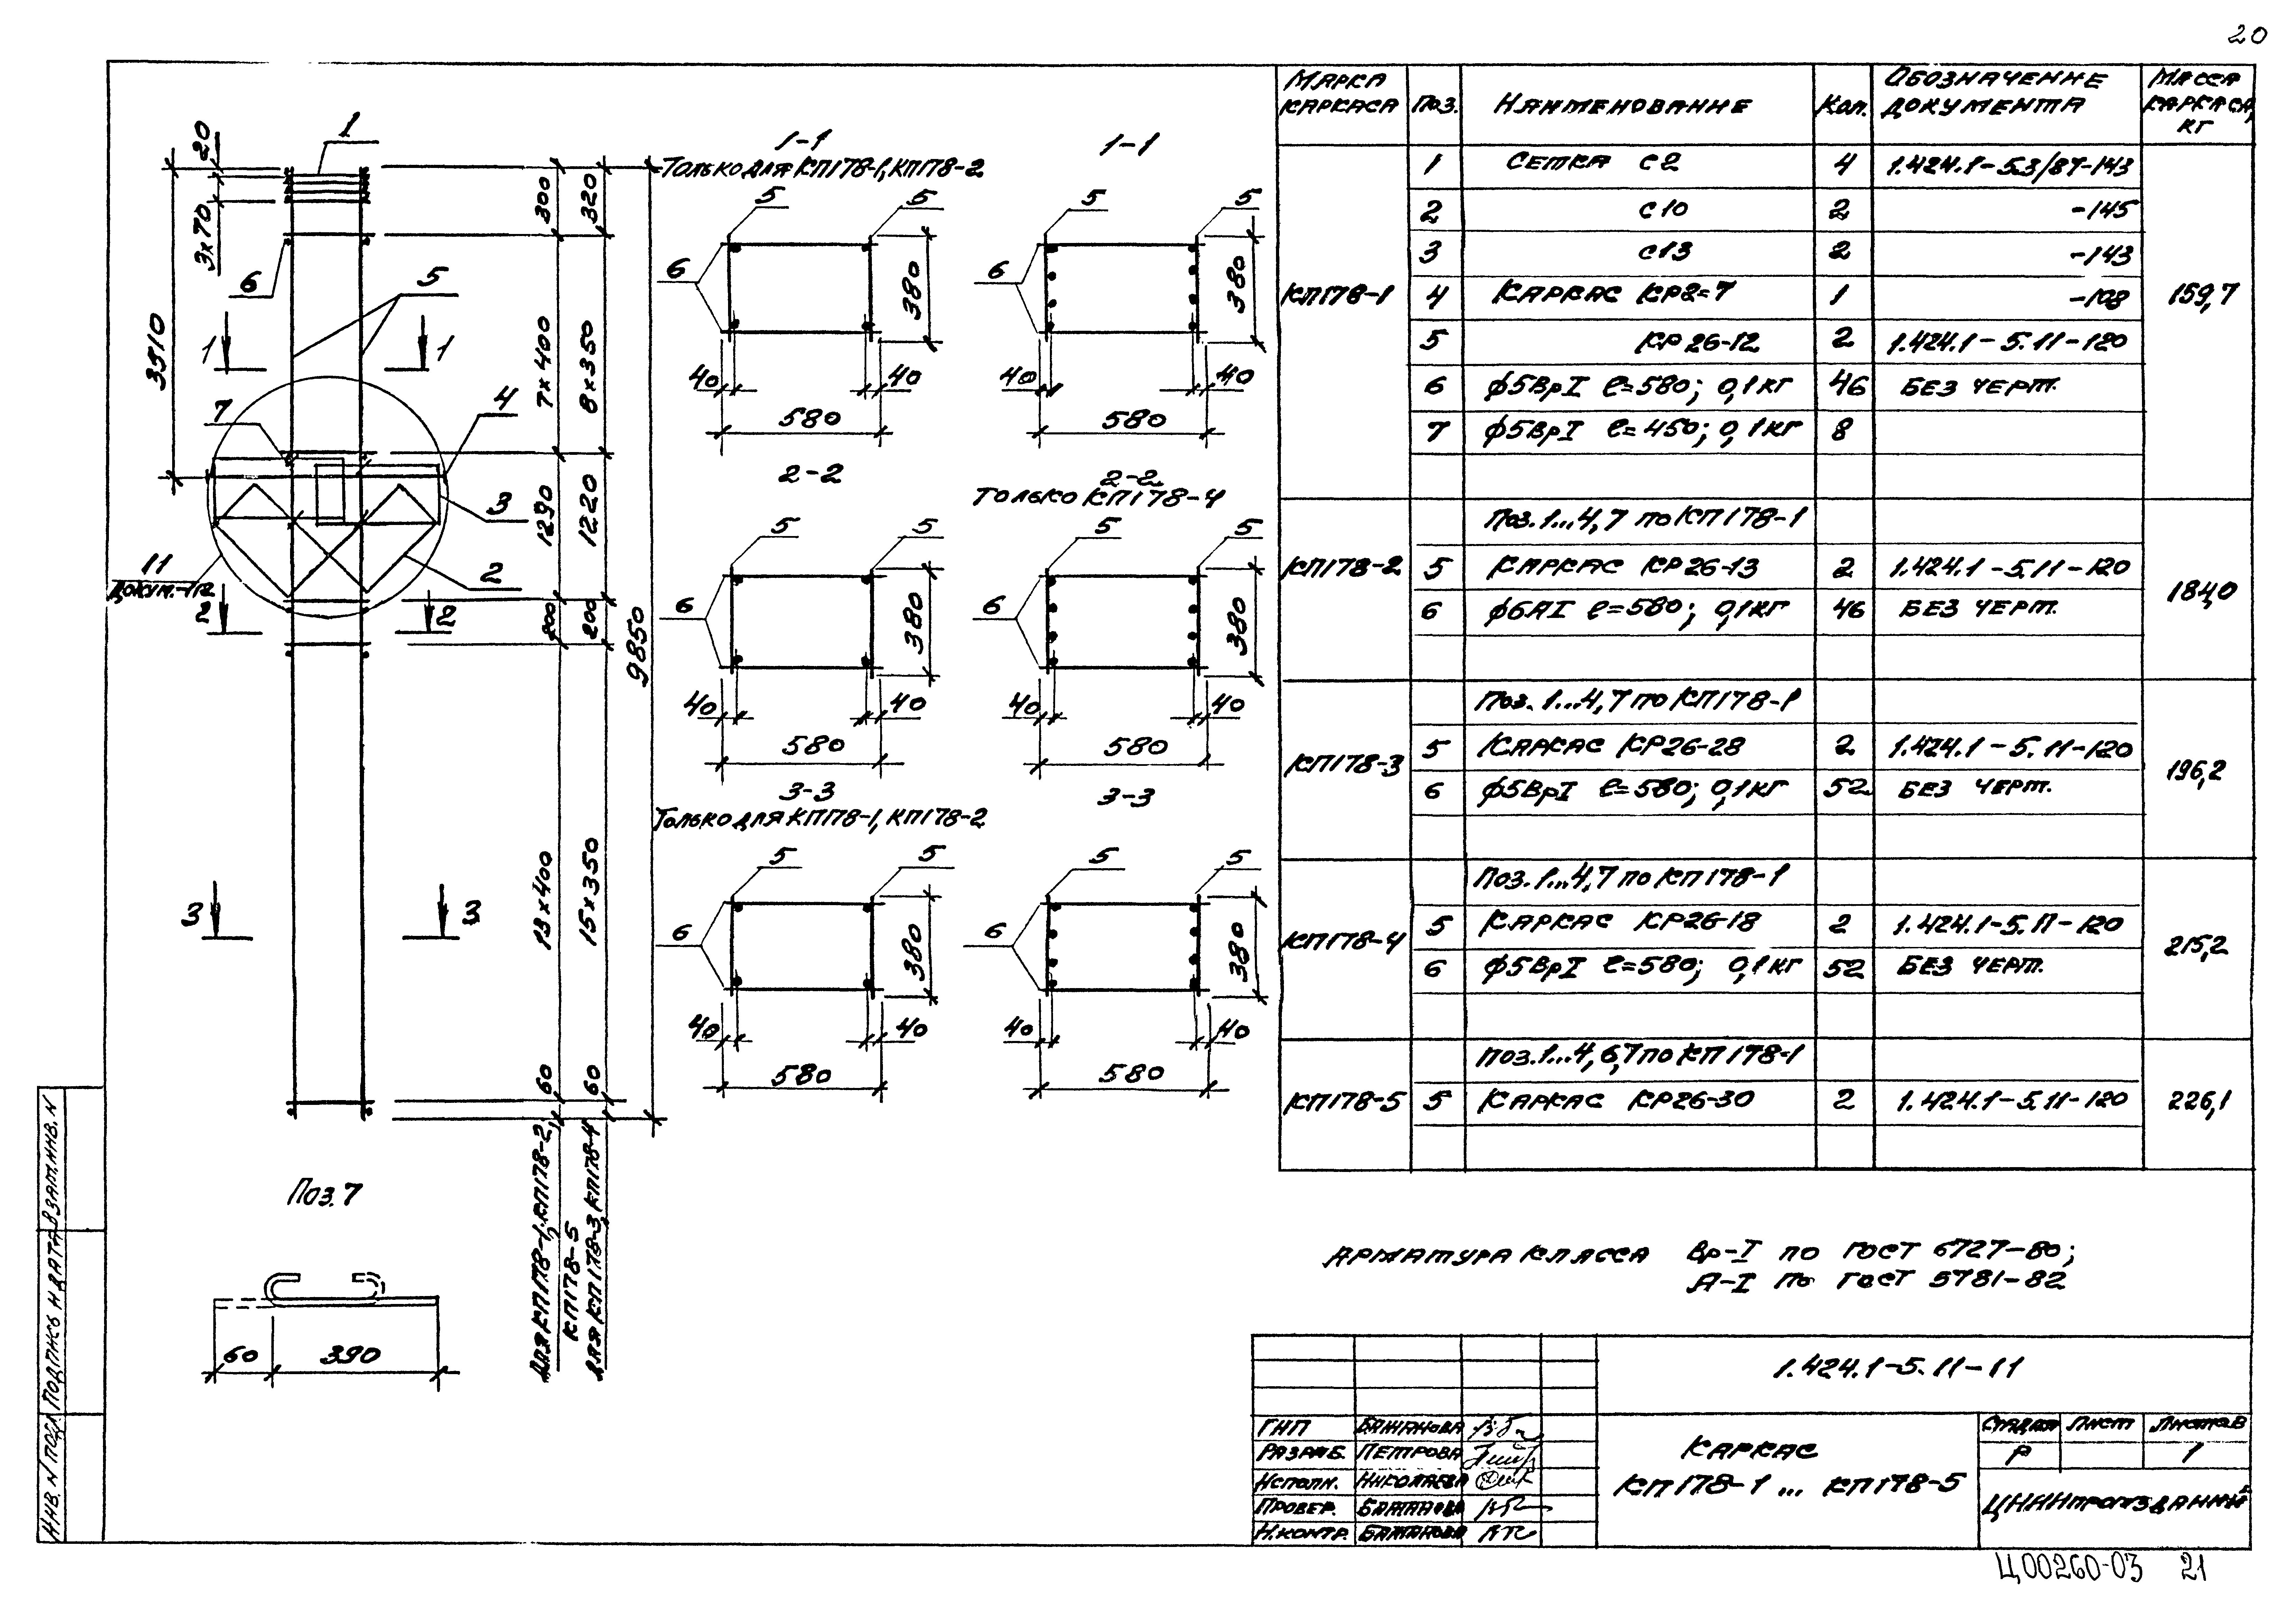 20
1
20
3×70
3510
6
5
1
1
7
4
3
2
11
2
2
3
3
300
320
7×400
8×350
1290
1220
200
200
13×400
15×350
60
60
9850
Для КП178-1, КП178-2,
КП178-5
Для КП178-3, КП178-4
Поз.7
60
390
1-1
Только для КП178-1, КП178-2
5
5
6
380
40
40
580
1-1
5
5
6
380
40
40
580
2-2
5
5
6
380
40
40
580
2-2
Только КП178-4
5
5
6
380
40
40
580
3-3
Только для КП178-1, КП178-2
5
5
6
380
40
40
580
3-3
5
5
6
380
40
40
580
Марка каркаса Поз. Наименование Кол. Обозначение документа Масса каркаса, кг
КП178-1 159,7
1 Сетка С2 4 1.424.1-5.3/87-143
2 С10 2 -145
3 С13 2 -143
4 Каркас КР2-7 1 -108
5 КР26-12 2 1.424.1-5.11-120
6 ϕ5ВрI ℓ=580; 0,1кг 46 Без черт.
7 ϕ5ВрI ℓ=450; 0,1кг 8
КП178-2 184,0
Поз.1...4,7 по КП178-1
5 Каркас КР26-13 2 1.424.1-5.11-120
6 ϕ6АI ℓ=580; 0,1кг 46 Без черт.
КП178-3 196,2
Поз.1...4,7 по КП178-1
5 Каркас КР26-28 2 1.424.1-5.11-120
6 ϕ5ВрI ℓ=580; 0,1кг 52 Без черт.
КП178-4 215,2
Поз.1...4,7 по КП178-1
5 Каркас КР26-18 2 1.424.1-5.11-120
6 ϕ5ВрI ℓ=580; 0,1кг 52 Без черт.
КП178-5 226,1
Поз.1...4,6,7 по КП178-1
5 Каркас КР26-30 2 1.424.1-5.11-120
Арматура класса Вр-I по ГОСТ 6727-80;
А-I по ГОСТ 5781-82
1.424.1-5.11-11
ГИП Бажанова
Разраб. Петрова
Исполн. Николаева
Провер. Бажанова
Н.контр. Бажанова
Каркас
КП178-1 ... КП178-5
Стадия Лист Листов
Р 1
ЦНИИпромзданий
Инв. N подл. Подпись и дата Взам.инв. N
Ц00260-03 21